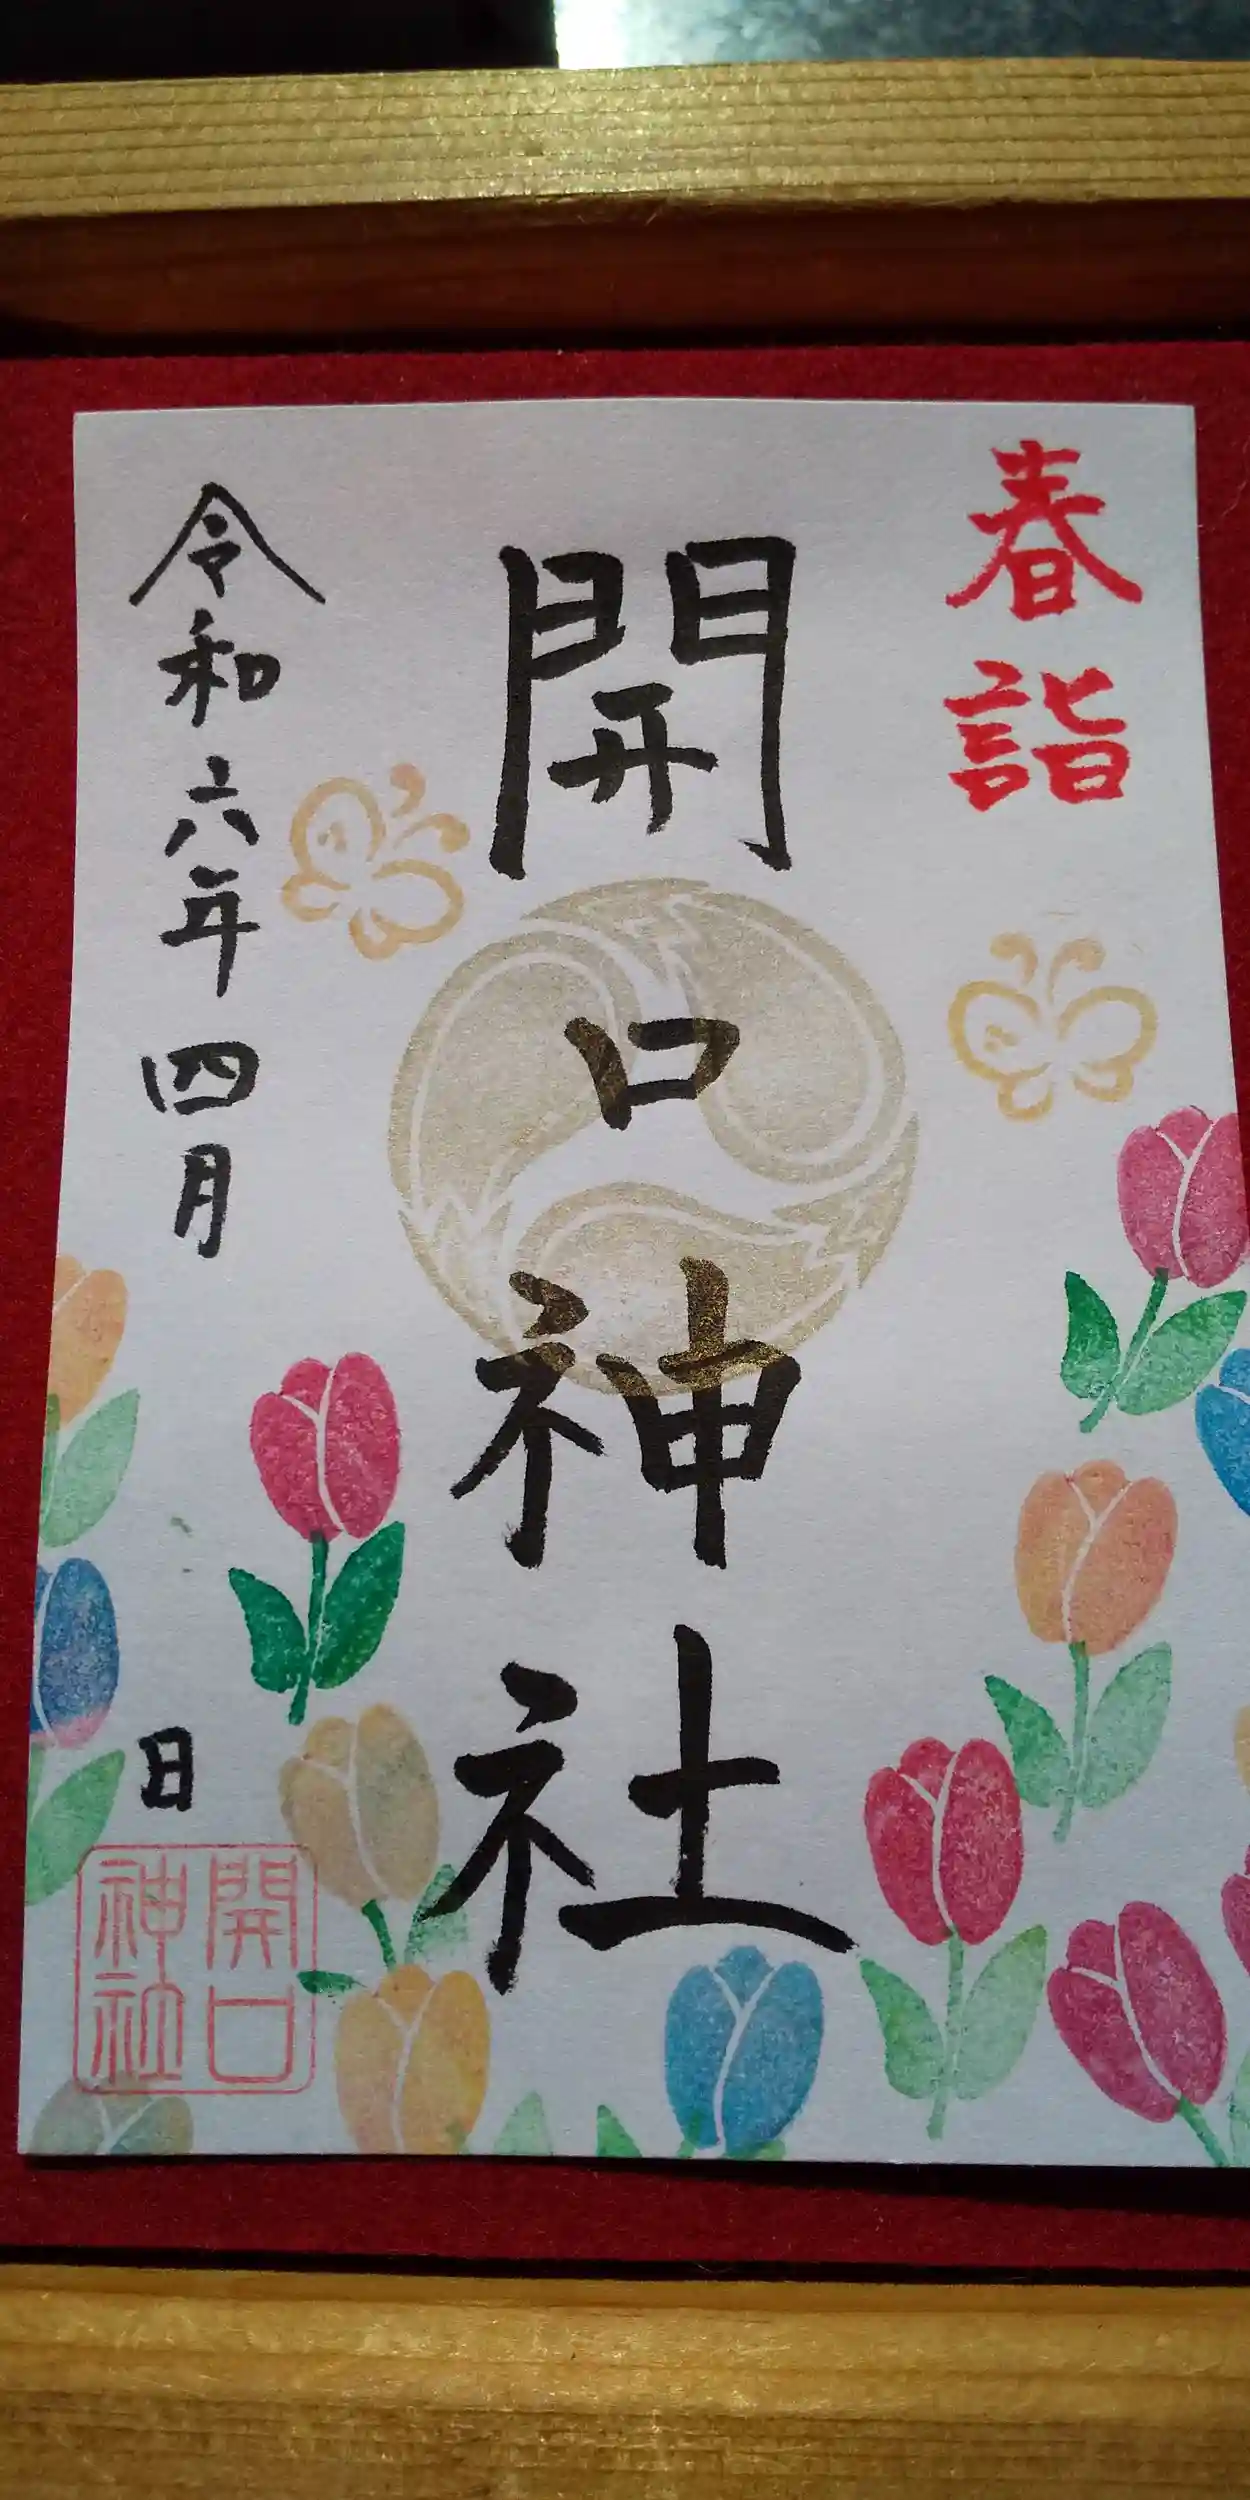 春詣
開口神社
令和六年四月 日
開口
神社